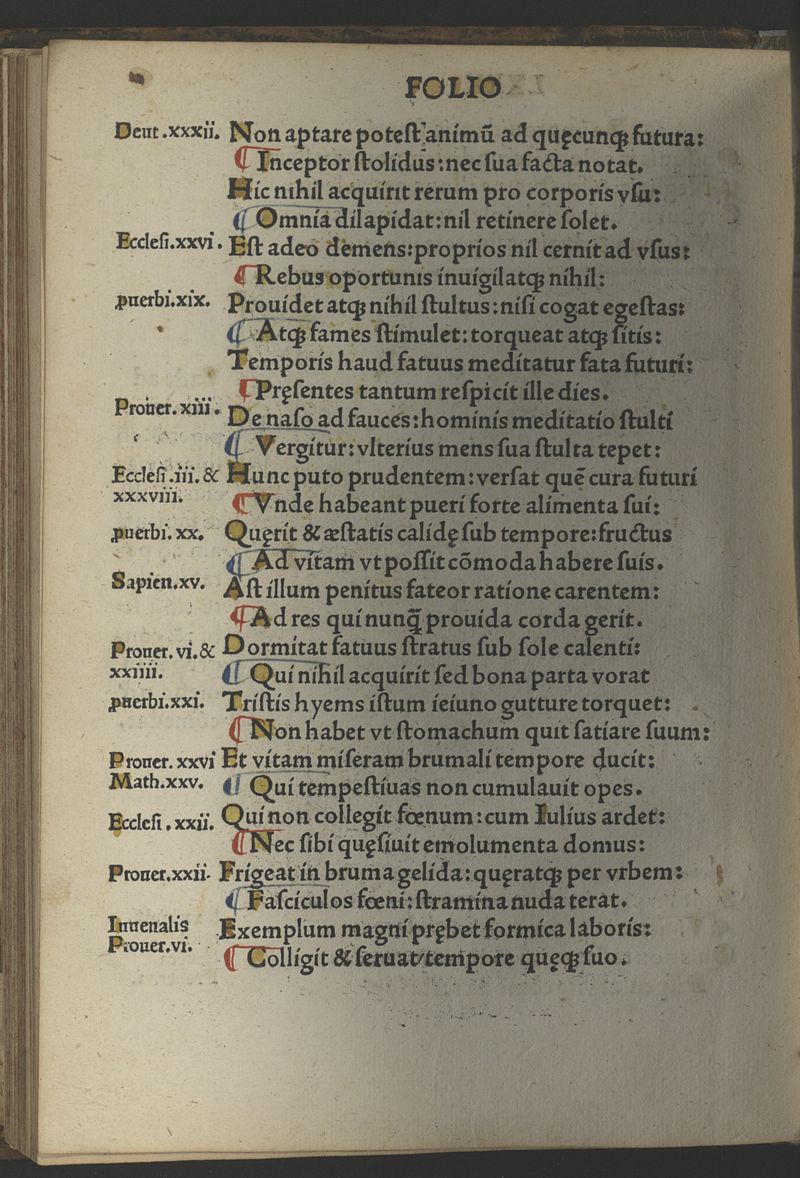 FOLIO
Deut.xxxii. Non aptare potest animū ad quęcunqꝫ futura:
¶ Inceptor stolidus: nec sua facta notat.
Hic nihil acquirit rerum pro corporis vsu:
¶ Omnia dilapidat: nil retinere solet.
Ecclesi.xxvi. Est adeo demens: proprios nil cernit ad vsus:
¶ Rebus oportunis inuigilatqꝫ nihil:
ꝓuerbi.xix. Prouidet atqꝫ nihil stultus: nisi cogat egestas:
¶ Atqꝫ fames stimulet: torqueat atqꝫ sitis:
Temporis haud fatuus meditatur fata futuri:
¶ Pręsentes tantum respicit ille dies.
Prouer.xiii. De naso ad fauces: hominis meditatio stulti
¶ Vergitur: vlterius mens sua stulta tepet:
Ecclesi.iii. & Hunc puto prudentem: versat quē cura futuri
xxxviii. ¶ Vnde habeant pueri forte alimenta sui:
ꝓuerbi.xx. Quęrit & æstatis calidę sub tempore: fructus
¶ Ad vitam vt possit cōmoda habere suis.
Sapien.xv. Ast illum penitus fateor ratione carentem:
¶ Ad res qui nunq̄ prouida corda gerit.
Prouer.vi.& Dormitat fatuus stratus sub sole calenti:
xxiiii. ¶ Qui nihil acquirit sed bona parta vorat
ꝓuerbi.xxi. Tristis hyems istum ieiuno gutture torquet:
¶ Non habet vt stomachum quit satiare suum:
Prouer.xxvi Et vitam miseram brumali tempore ducit:
Math.xxv. ¶ Qui tempestiuas non cumulauit opes.
Ecclesi.xxii. Qui non collegit fœnum: cum Iulius ardet:
¶ Nec sibi quęsiuit emolumenta domus:
Prouer.xxii. Frigeat in bruma gelida: quęratqꝫ per vrbem:
¶ Fasciculos fœni: stramina nuda terat.
Iuuenalis Exemplum magni prębet formica laboris:
Prouer.vi. ¶ Colligit & seruat/tempore quęqꝫ suo.